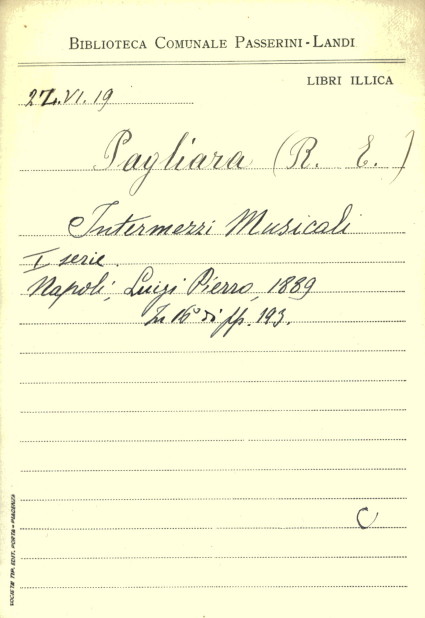 BIBLIOTECA COMUNALE PASSERINI-LANDI
LIBRI ILLICA
27.VI.19
Pagliara (R. E.)
Intermezzi Musicali
I serie.
Napoli, Luigi Pierro, 1889
In 16° di pp. 193.
C